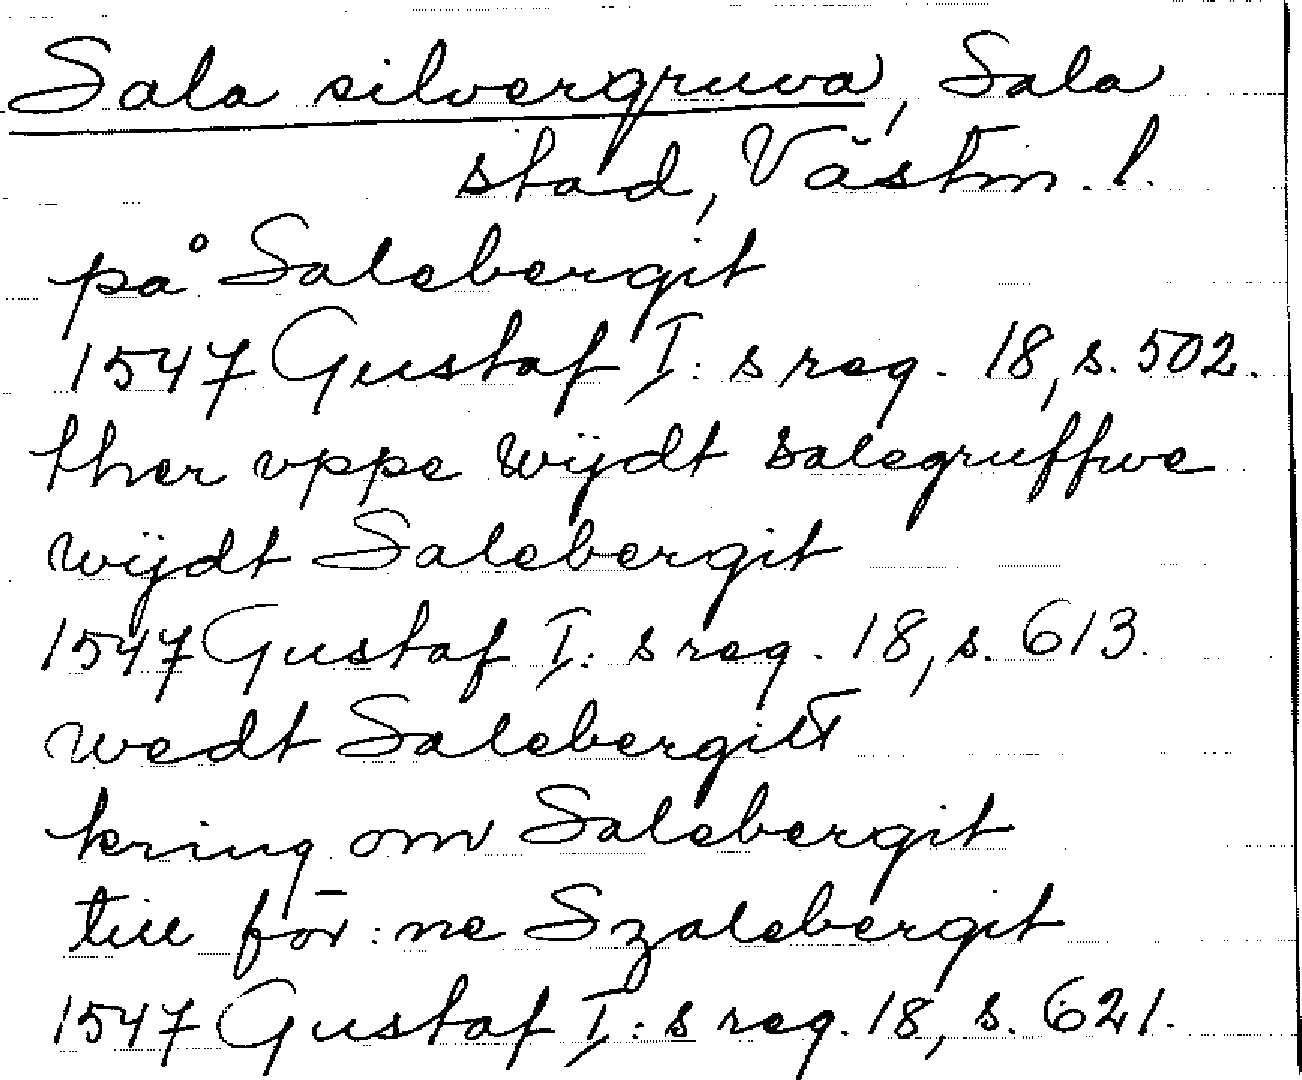 Sala silvergruva, Sala
stad, Västm. l.
på Salebergit
1547 Gustaf I: s reg. 18, s. 502.
ther vppe wijdt salegruffwe
wijdt Salebergit
1547 Gustaf I: s reg. 18, s. 613.
wedt Salebergitt
kring om Salebergit
till för:ne Szalebergit
1547 Gustaf I: s reg. 18, s. 621.